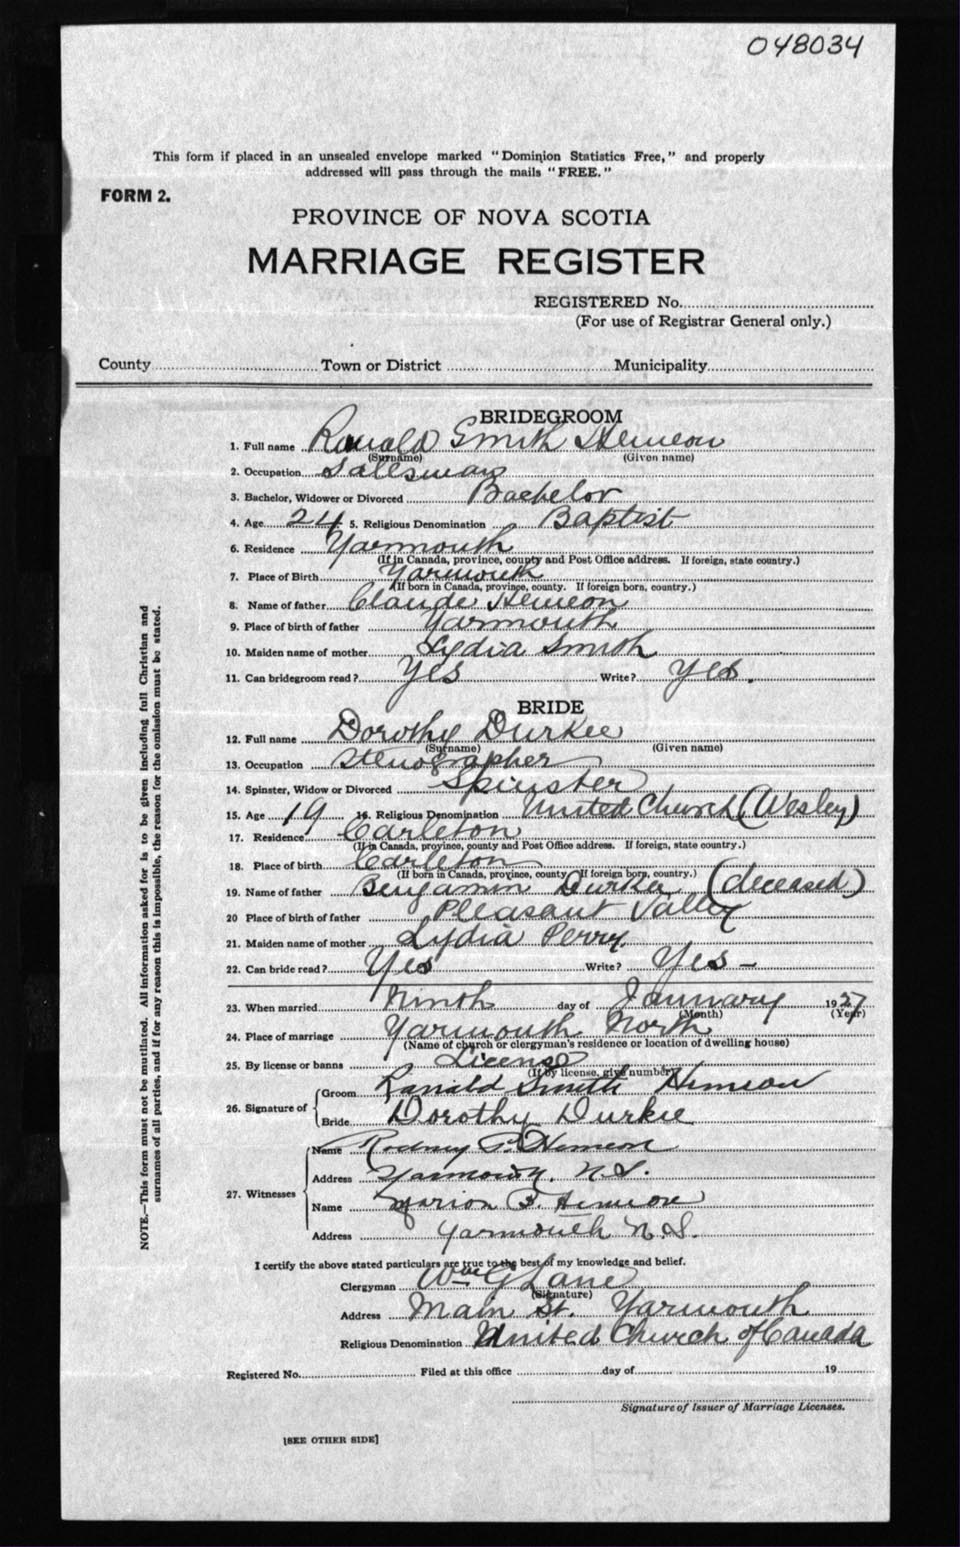 048034
This form if placed in an unsealed envelope marked "Dominion Statistics Free," and properly
addressed will pass through the mails "FREE."
FORM 2.
PROVINCE OF NOVA SCOTIA
MARRIAGE REGISTER
REGISTERED No.
(For use of Registrar General only.)
County Town or District Municipality
BRIDEGROOM
1. Full name Ronald Smith Hemeon
(Surname) (Given name)
2. Occupation Salesman
3. Bachelor, Widower or Divorced Bachelor
4. Age 24 5. Religious Denomination Baptist
6. Residence Yarmouth
(If in Canada, province, county and Post Office address. If foreign, state country.)
7. Place of Birth Yarmouth
(If born in Canada, province, county. If foreign born, country.)
8. Name of father Claude Hemeon
9. Place of birth of father Yarmouth
10. Maiden name of mother Lydia Smith
11. Can bridegroom read? Yes Write? Yes.
BRIDE
12. Full name Dorothy Durkee
(Surname) (Given name)
13. Occupation Stenographer
14. Spinster, Widow or Divorced Spinster
15. Age 19 16. Religious Denomination United Church (Wesley)
17. Residence Carleton
(If in Canada, province, county and Post Office address. If foreign, state country.)
18. Place of birth Carleton
(If born in Canada, province, county. If foreign born, country.)
19. Name of father Benjamin Durkee (deceased)
20 Place of birth of father Pleasant Valley
21. Maiden name of mother Lydia Perry.
22. Can bride read? Yes Write? Yes –
23. When married Ninth day of January 1927
(Month) (Year)
24. Place of marriage Yarmouth North
(Name of church or clergyman's residence or location of dwelling house)
25. By license or banns License
(If by license, give number)
26. Signature of Groom Ronald Smith Hemeon
Bride Dorothy Durkee
27. Witnesses
Name Rodney P. Hemeon
Address Yarmouth, N.S.
Name Marion F. Hemeon
Address Yarmouth N.S.
I certify the above stated particulars are true to the best of my knowledge and belief.
Clergyman Wm G Lane
(Signature)
Address Main St. Yarmouth
Religious Denomination United Church of Canada
Registered No. Filed at this office day of 19
Signature of Issuer of Marriage Licenses.
[SEE OTHER SIDE]
NOTE.—This form must not be mutilated. All information asked for is to be given including full Christian and
surnames of all parties, and if for any reason this is impossible, the reason for the omission must be stated.